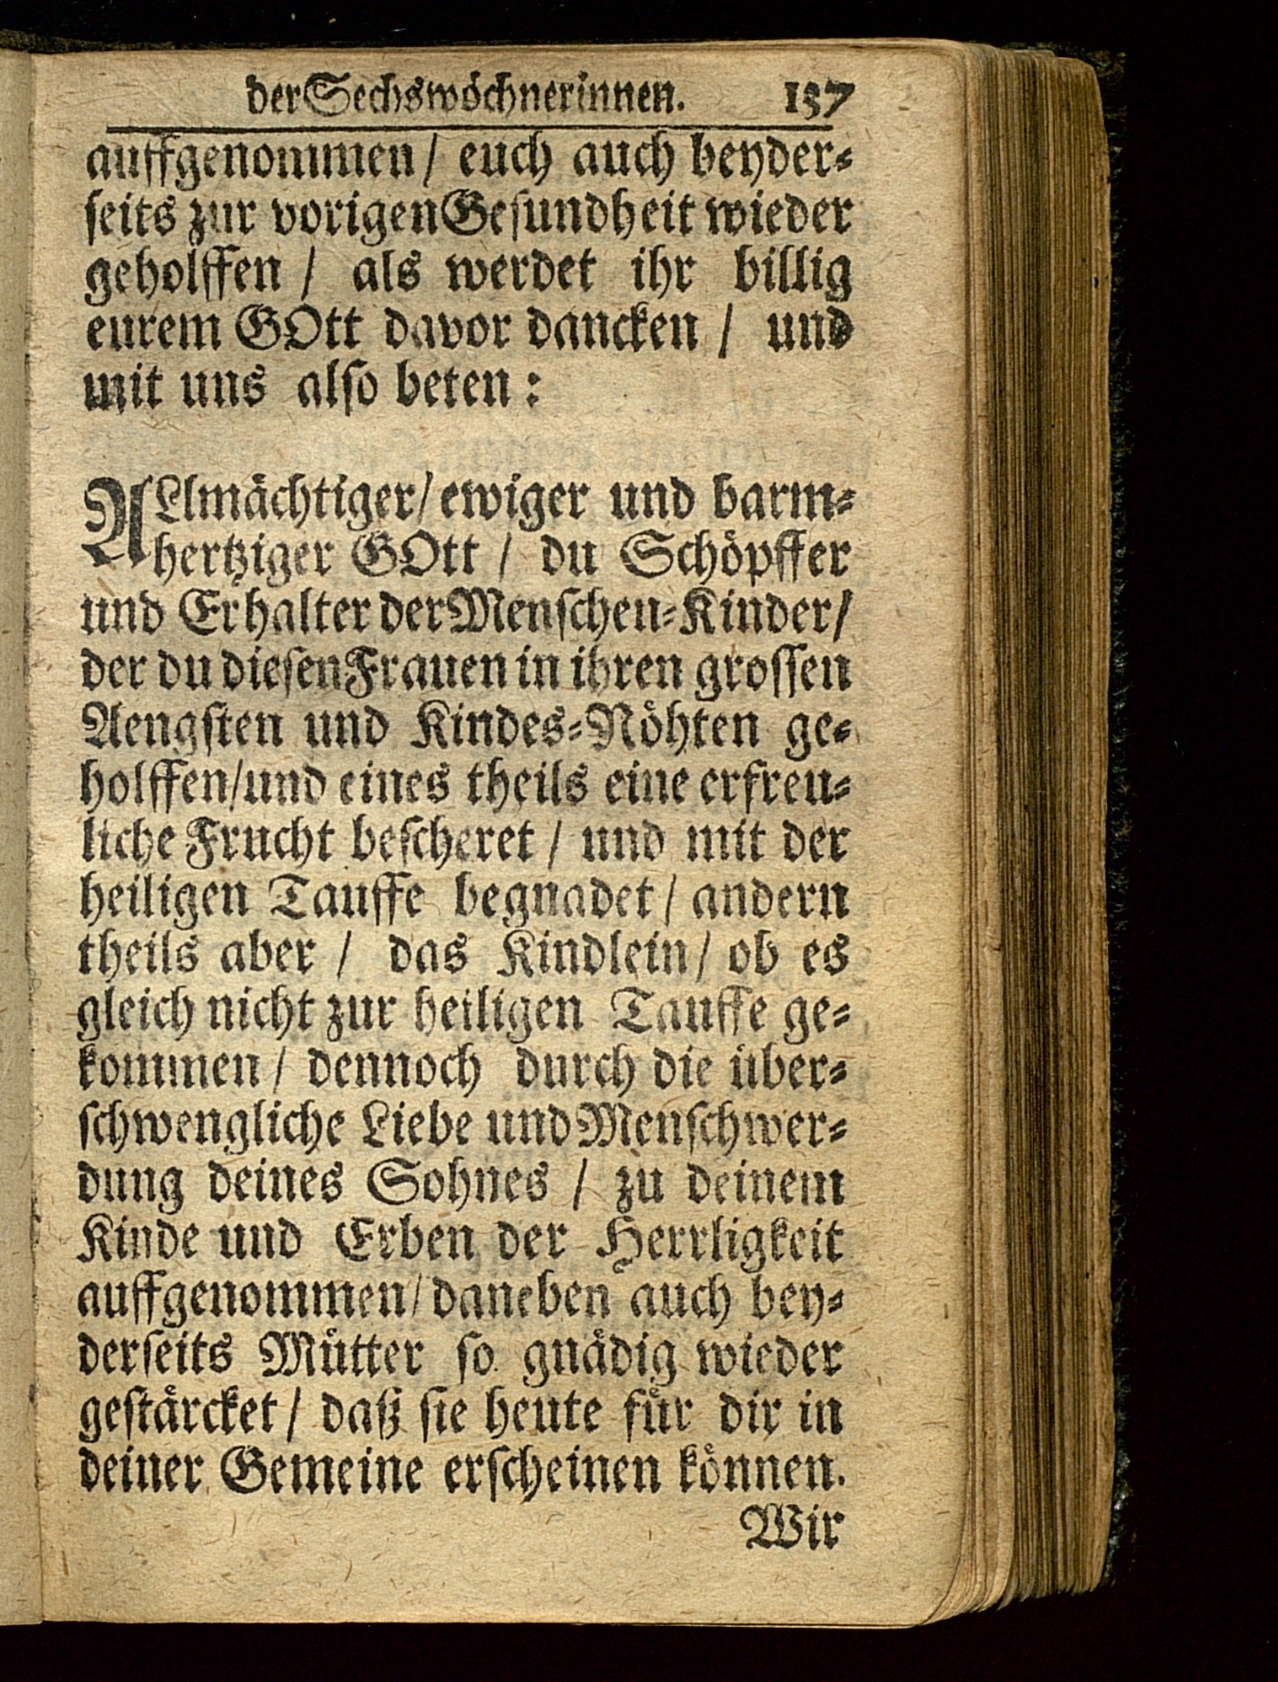 der Sechswöchnerinnen. 157
auffgenommen / euch auch beyder⸗
seits zur vorigen Gesundheit wieder
geholffen / als werdet ihr billig
eurem GOtt davor dancken / und
mit uns also beten:
ALlmächtiger / ewiger und barm⸗
hertziger GOtt / du Schöpffer
und Erhalter der Menschen⸗Kinder /
der du diesen Frauen in ihren grossen
Aengsten und Kindes⸗Nöhten ge⸗
holffen / und eines theils eine erfreu⸗
liche Frucht bescheret / und mit der
heiligen Tauffe begnadet / andern
theils aber / das Kindlein / ob es
gleich nicht zur heiligen Tauffe ge⸗
kommen / dennoch durch die über⸗
schwengliche Liebe und Menschwer⸗
dung deines Sohnes / zu deinem
Kinde und Erben der Herrligkeit
auffgenommen / daneben auch bey⸗
derseits Mütter so gnädig wieder
gestärcket / daß sie heute für dir in
deiner Gemeine erscheinen können.
Wir